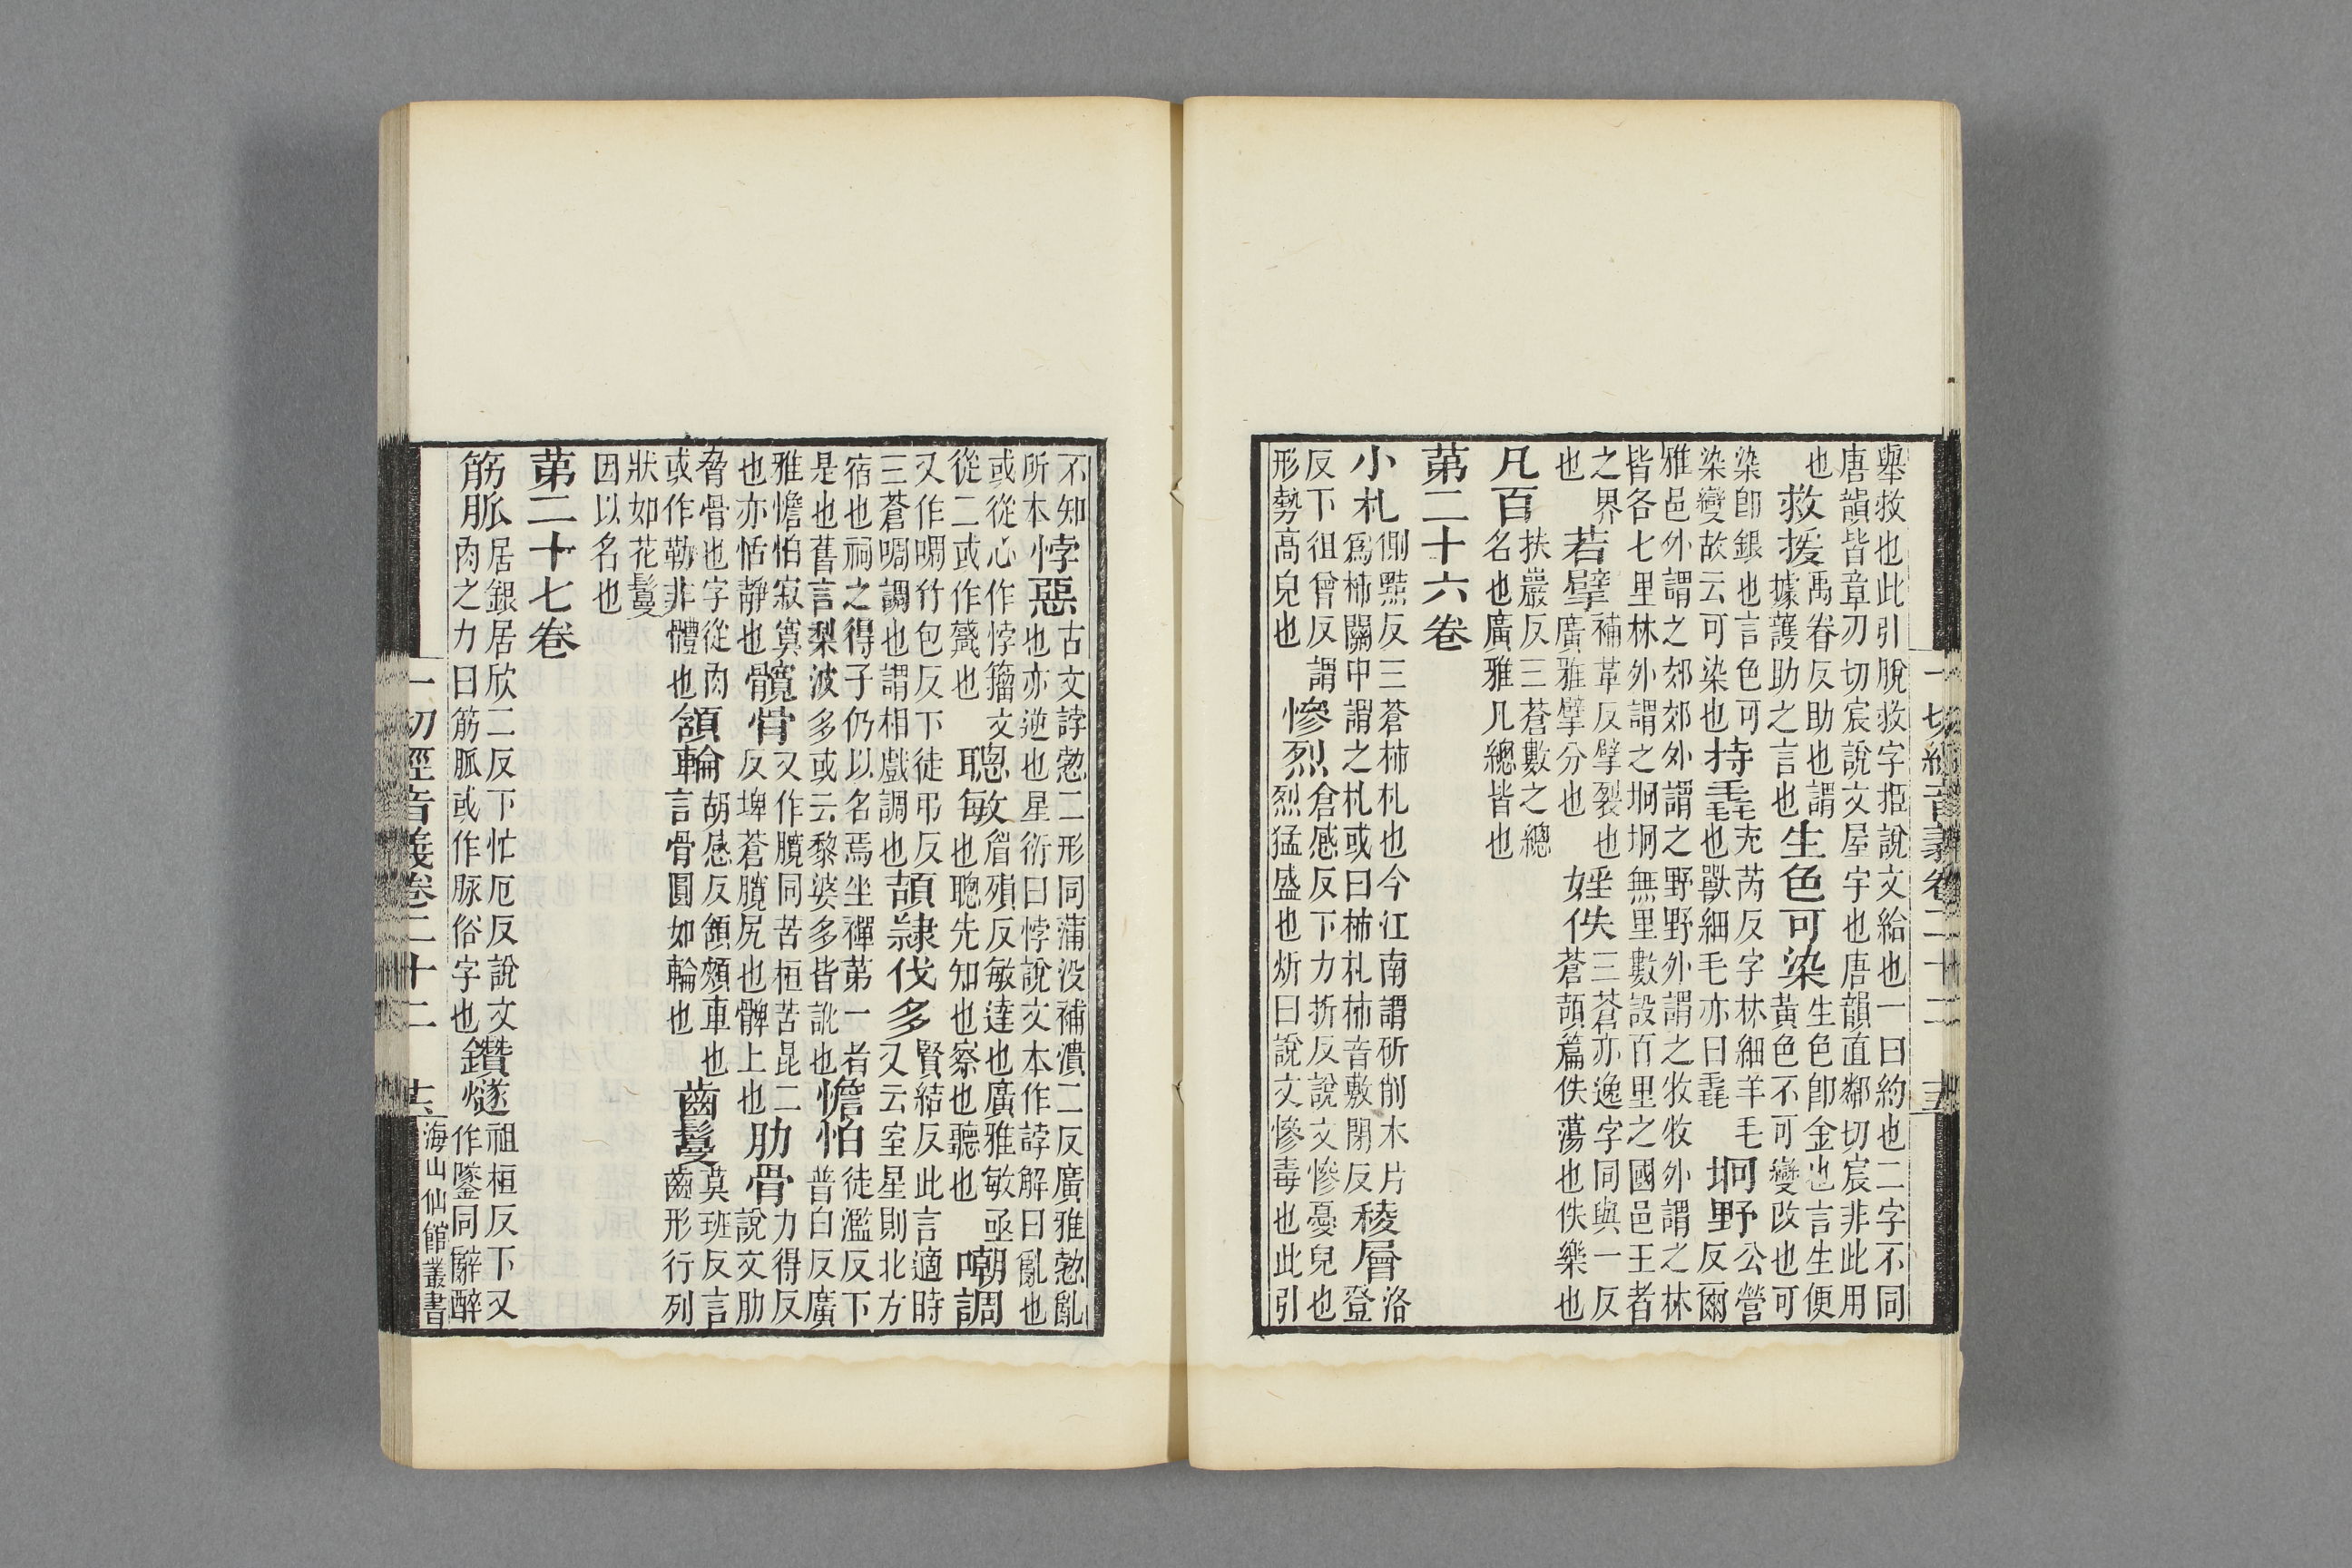 一切經音義卷二十二 十三
舉救也此引脫救字挋說文給也一曰約也二字不同
唐韻皆章刃切宸說文屋宇也唐韻直鄰切宸非此用
也救援禹眷反助也謂據護助之言也生色可染生色卽金也言生便黃色不可變改也可
染卽銀也言色可染變故云可染也持毳充芮反字林細羊毛也獸細毛亦曰毳坰野公營反爾
雅邑外謂之郊郊外謂之野野外謂之牧牧外謂之林
皆各七里林外謂之坰坰無里數設百里之國邑王者
之界也若擘補革反擘裂也廣雅擘分也婬佚三蒼亦逸字同與一反蒼頡篇佚蕩也佚樂也
凡百扶嚴反三蒼數之總名也廣雅凡總皆也
第二十六卷
小札側黠反三蒼柿札也今江南謂斫削木片爲柿關中謂之札或曰柿札柿音敷閉反稜層洛登
反下徂曾反謂形勢高皃也慘烈倉感反下力折反說文慘憂皃也烈猛盛也炘曰說文慘毒也此引
不知所本悖惡古文誖愂二形同蒲没補潰二反廣雅愂亂也亦逆也星衍曰悖說文本作誖解曰亂也
或從心作悖籀文從二或作也聰敏眉殞反敏達也廣雅敏亟也聰先知也察也聽也嘲調
又作啁竹包反下徒弔反三蒼啁調也謂相戲調也頡隸伐多賢結反此言適時又云室星則北方
宿也祠之得子仍以名焉坐禪第一者是也舊言梨波多或云黎婆多皆訛也憺怕徒濫反下普白反廣
雅憺怕寂寞也亦恬靜也髖骨又作臗同苦桓苦昆二反埤蒼臗尻也髀上也肋骨力得反說文肋
脅骨也字從肉或作勒非體也頷輪胡感反頷頰車也言骨圓如輪也齒鬘莫班反言齒形行列
狀如花鬘因以名也
第二十七卷
筋脈居銀居欣二反下忙厄反說文肉之力曰筋脈或作脉俗字也鑽燧祖桓反下又作䥙同辭醉
一切經音義卷二十二 十三 海山仙館叢書